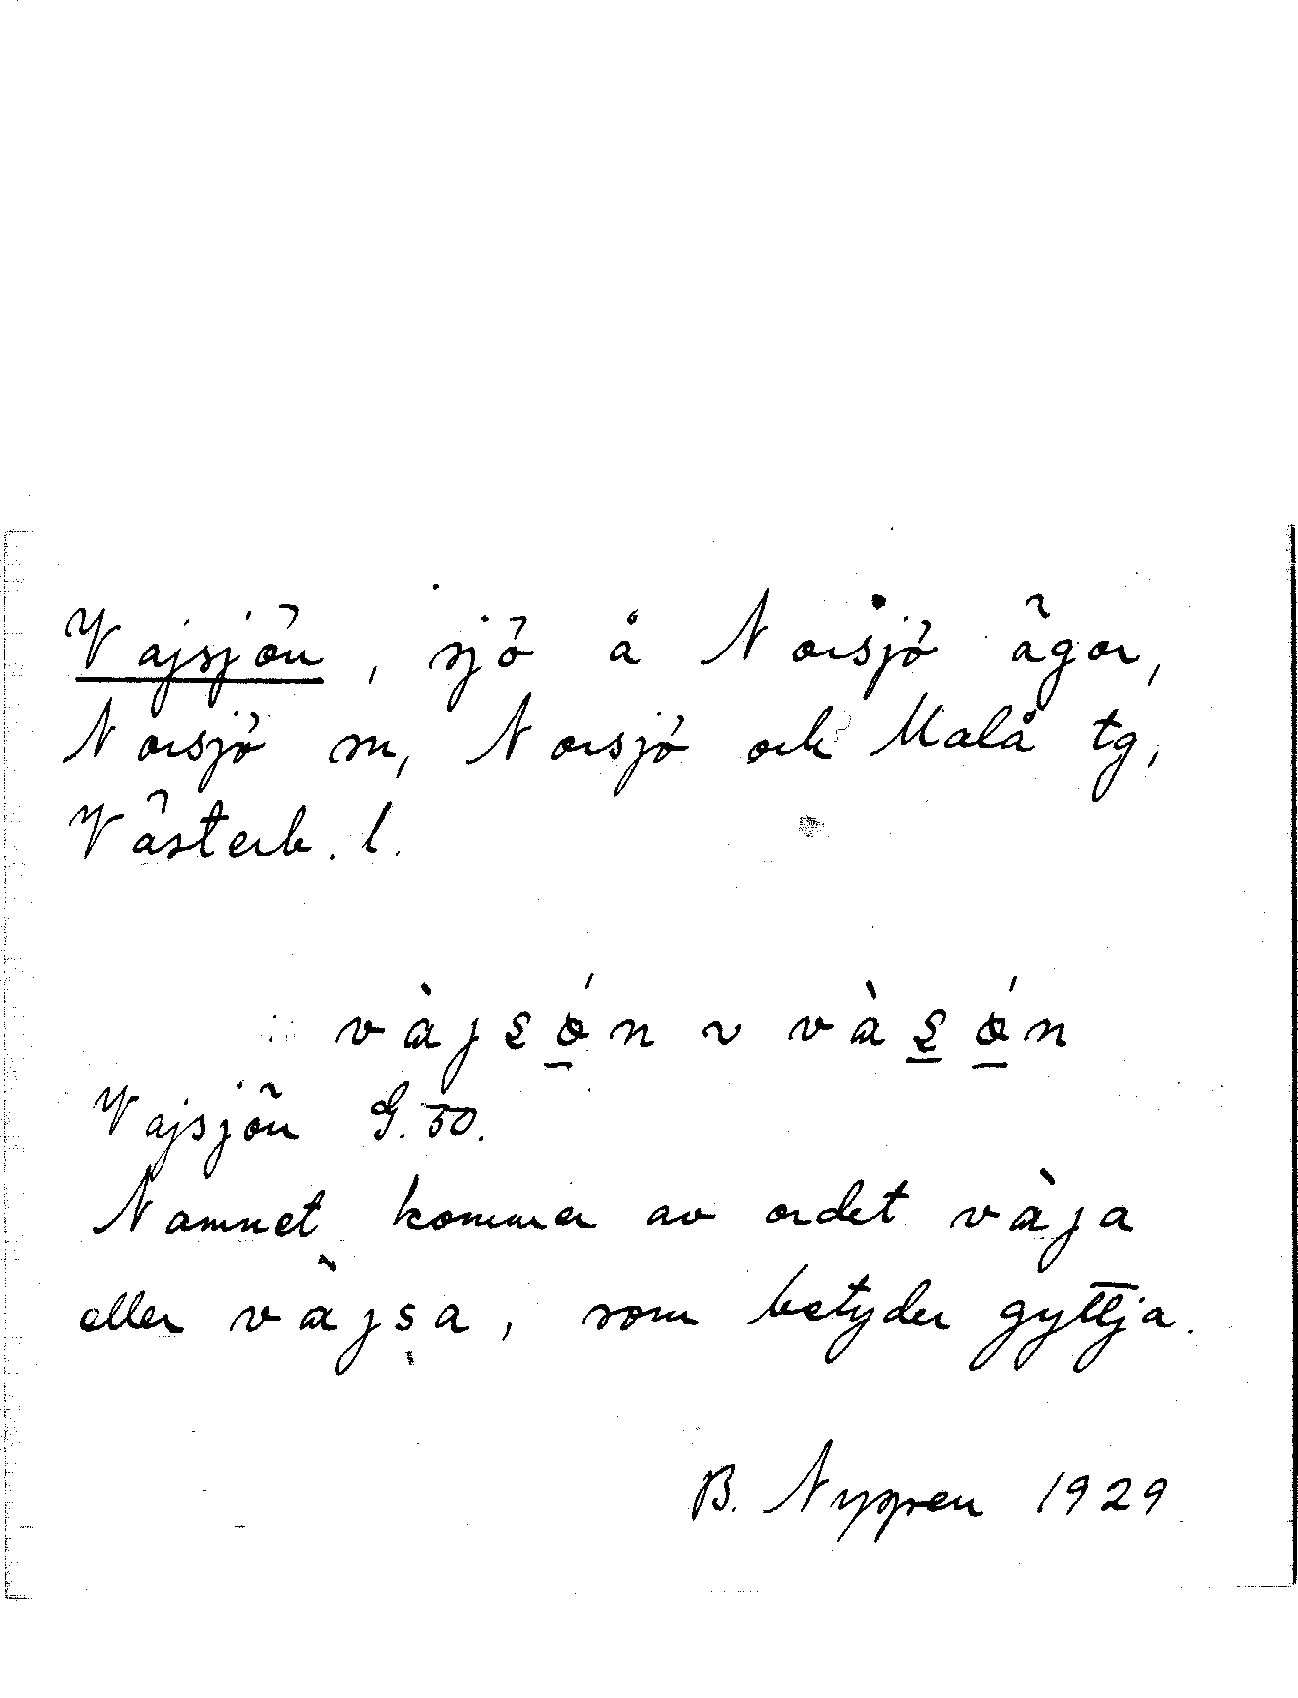 Vajsjön, sjö å Norsjö ägor,
Norsjö sn, Norsjö och Malå tg,
Västerb. l.
vàjʂǿn ~ vàʂǿn
Vajsjön G. 50.
Namnet kommer av ordet vàja
eller vàjsa, som betyder gyttja.
B. Nygren 1929